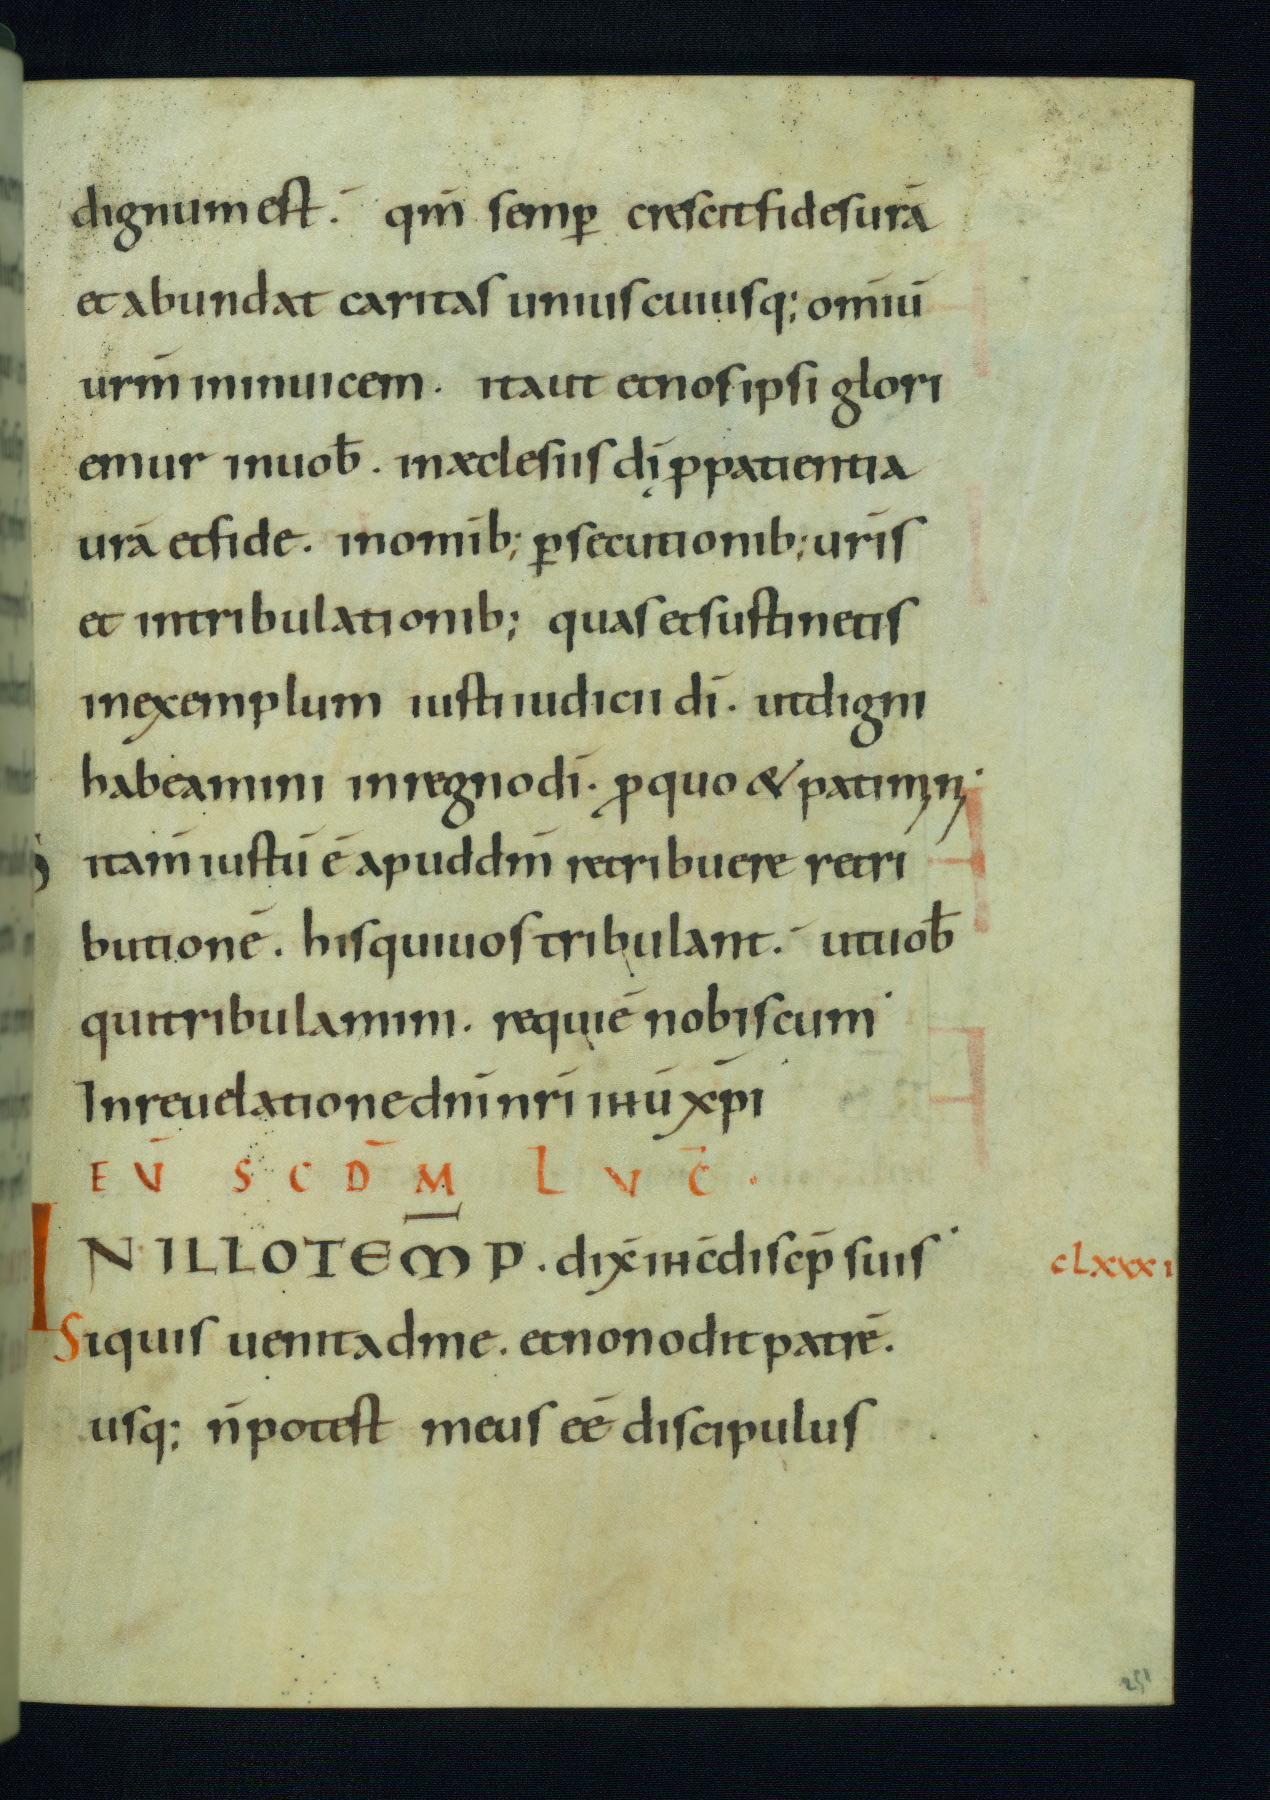 dignum est. qm̄ semp̄ crescit fides urā
et abundat caritas uniuscuiusq; omiū
urm̄ in inuicem. ita ut et nos ipsi glori
emur in uob̄. in æclesiis dī ꝓ patientia
urā et fide. in omib; ꝑsecutionib; uris
et in tribulationib; quas et sustinetis
in exemplum iusti iudicii dī. ut digni
habeamini in regno dī. ꝓ quo & patimini
itam̄ iustū ē apud dm̄ retribuere retri
butionē. his qui uos tribulant. ut uob̄
qui tribulamini. requiē nobiscum
In reuelatione dnī nrī ihū xp̄i
EV̄ SCD̄M LVC̄.
IN ILLO TEMP. dix̄ ihc̄ discip̄ suis
CLXXXI
Si quis uenit ad me. et non odit patrē.
usq; n̄ potest meus eē discipulus
251